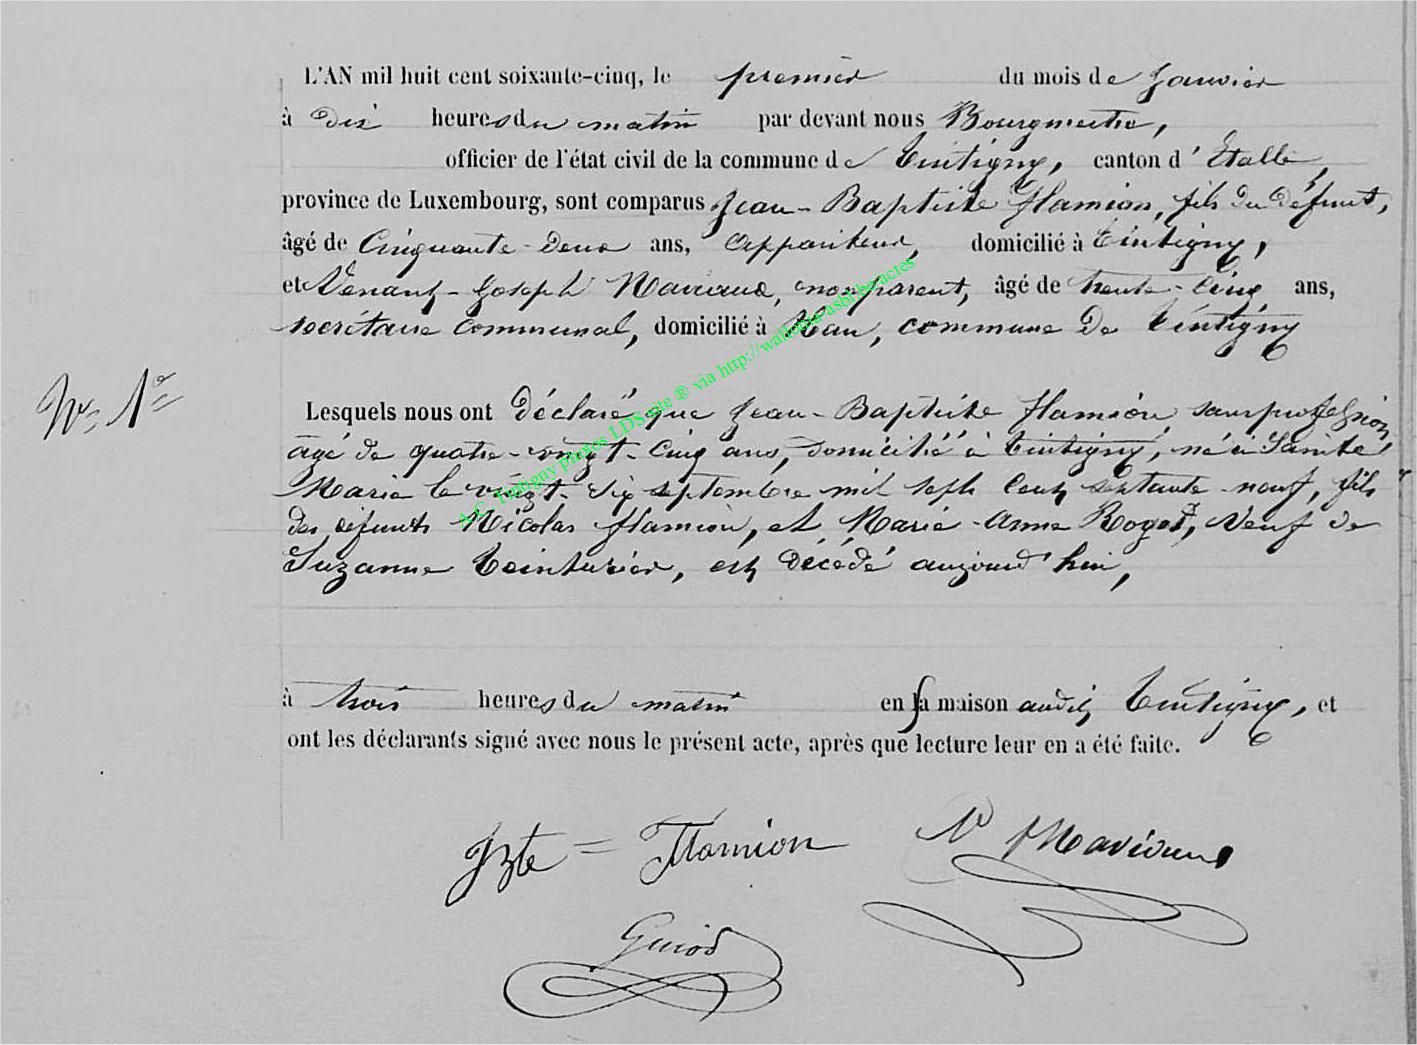 L'AN mil huit cent soixante-cinq, le premier du mois de Janvier
à Dix heures du matin par devant nous Bourgmestre,
officier de l'état civil de la commune de Tintigny, canton d'Etalle,
province de Luxembourg, sont comparus Jean-Baptiste Hamion, fils du défunt,
âgé de Cinquante-deux ans, appariteur, domicilié à Tintigny,
et Venant-Joseph non parent, âgé de trente-cinq ans,
secrétaire Communal, domicilié à Han, commune de Tintigny
N° 1er
Lesquels nous ont déclaré que Jean-Baptiste Hamion, sans profession,
âgé de quatre-vingt-cinq ans, domicilié à Tintigny, né à Sainte
Marie le vingt-six septembre mil sept cent septante neuf, fils
des défunts Nicolas Hamion, et Marie-Anne Roget, Veuf de
Suzanne Teinturier, est décédé aujourd'hui,
à trois heures du matin en sa maison audit Tintigny, et
ont les déclarants signé avec nous le présent acte, après que lecture leur en a été faite.
JBte = Hamion
Guiod
A.C. Tintigny photos LDS site ® via http://wallonia-asbl.be/actes